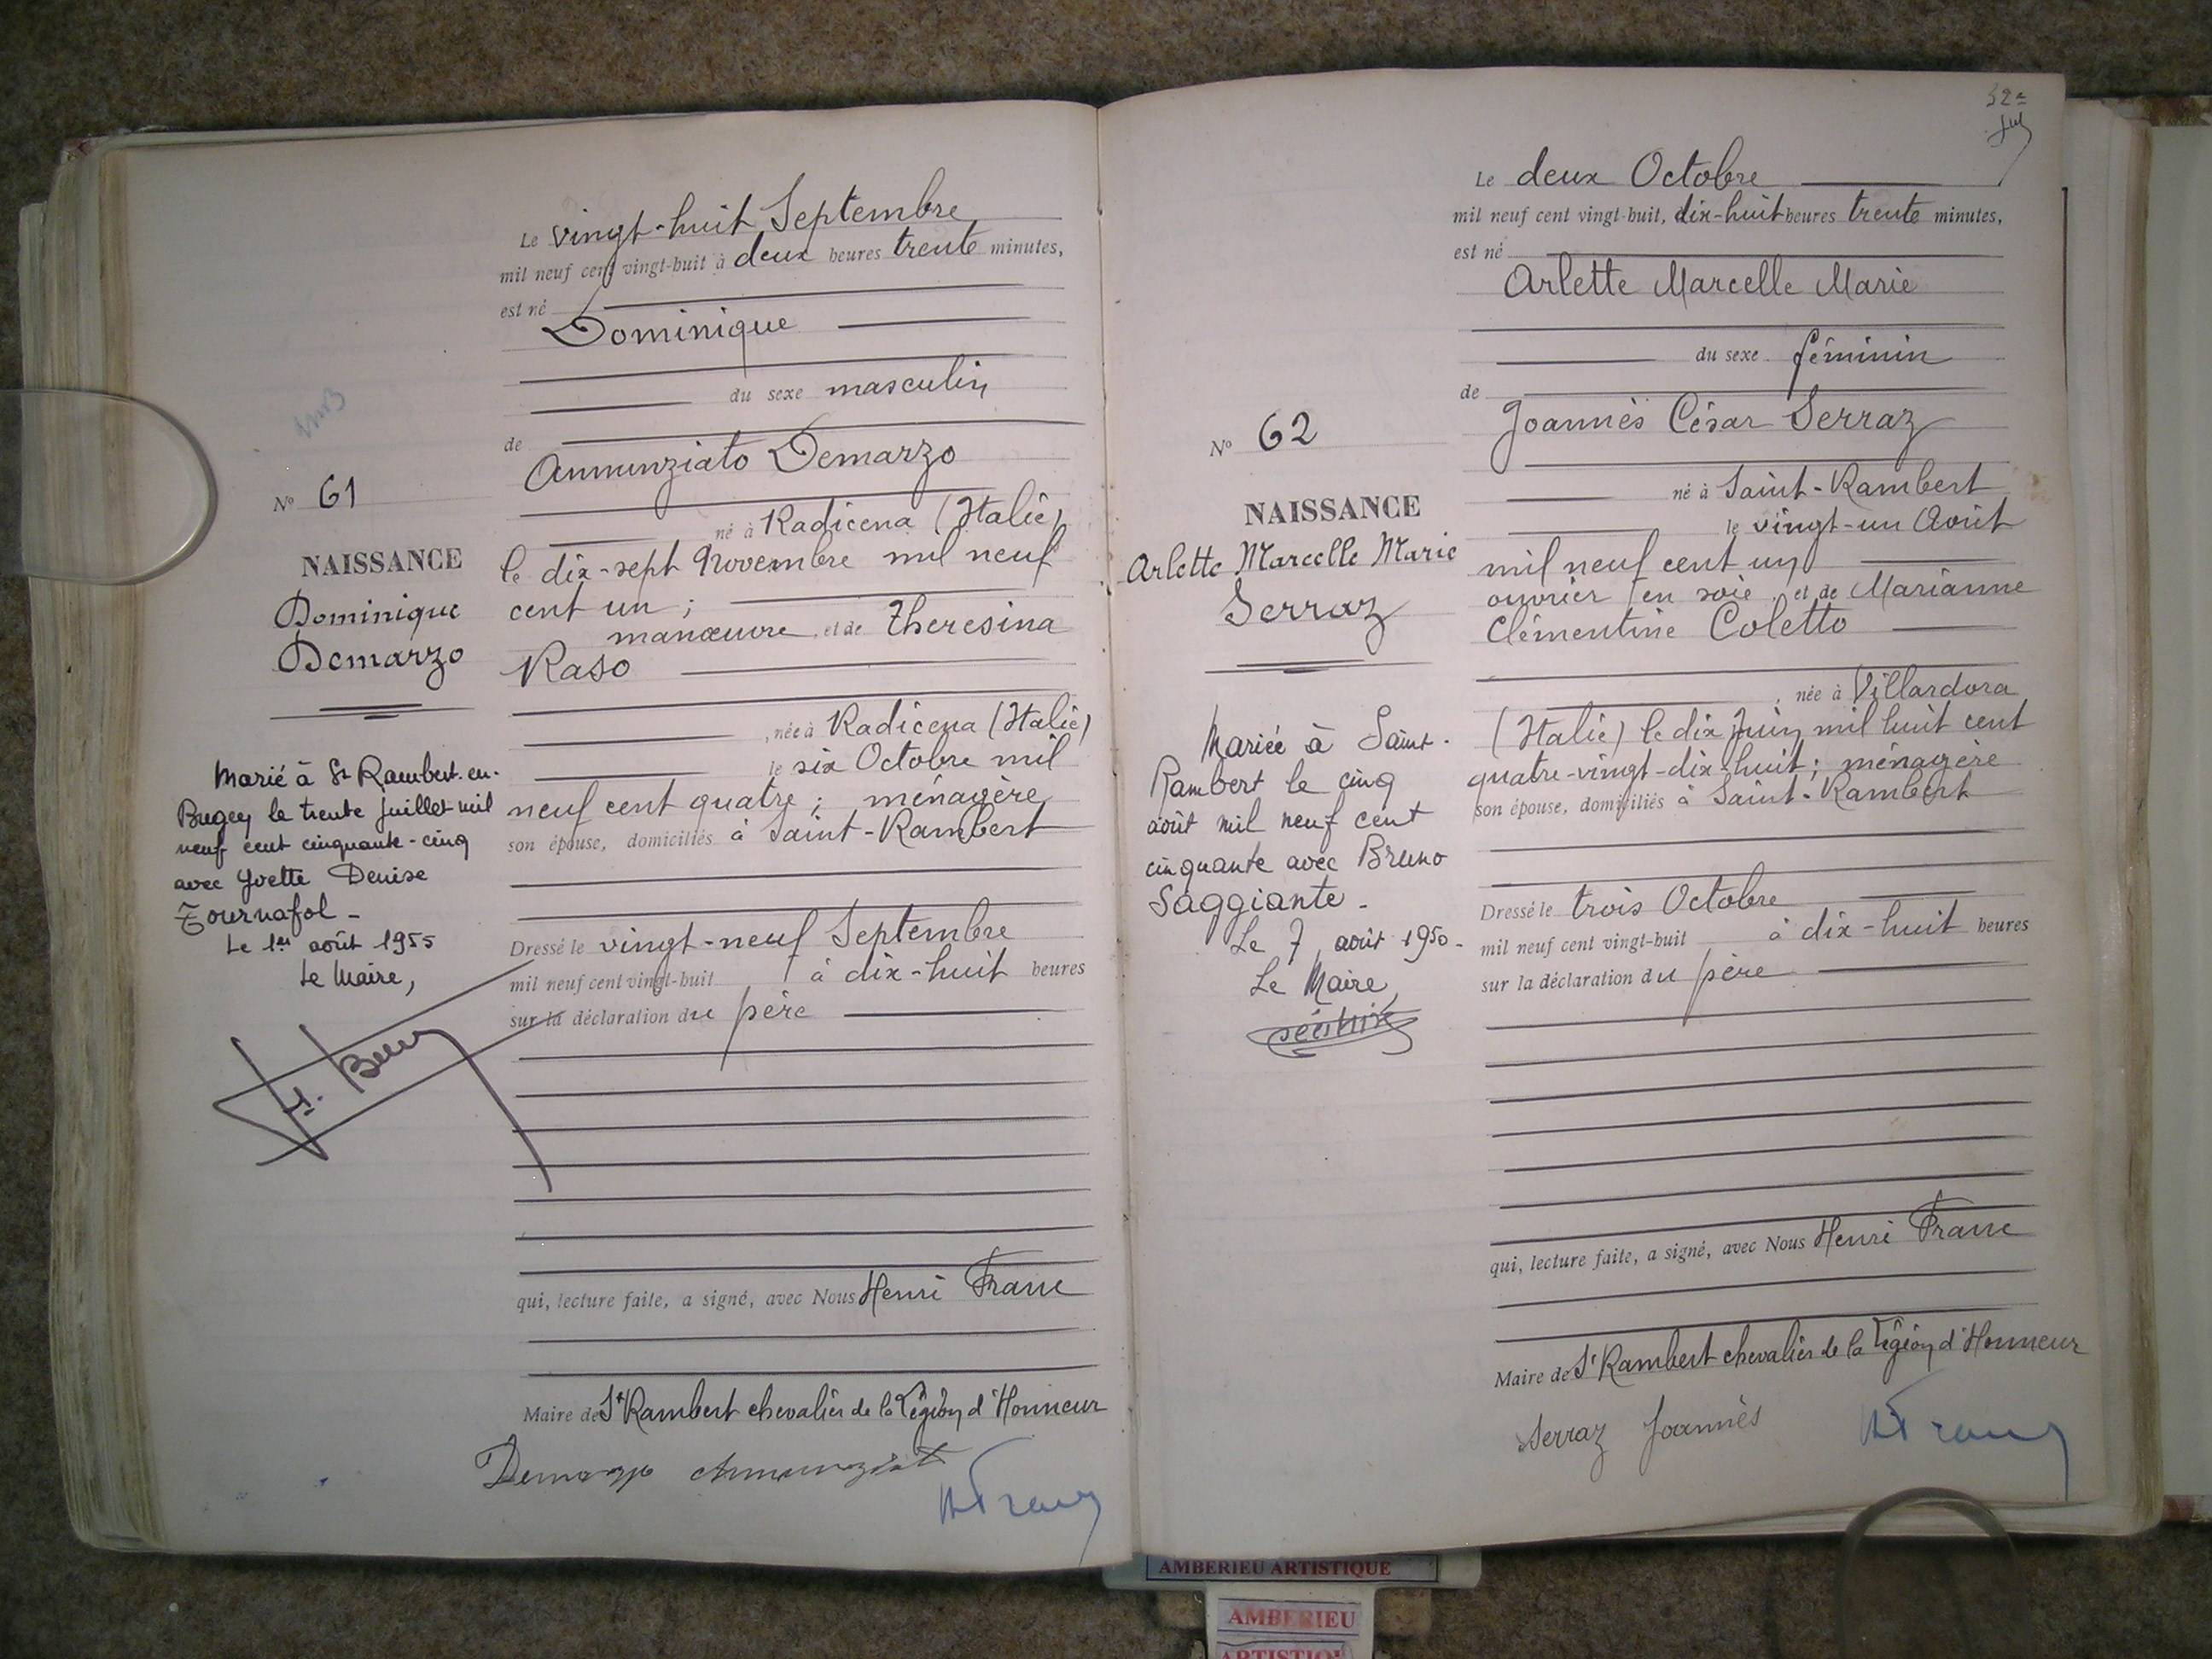 N° 61
NAISSANCE
Dominique
Demarzo
Marié à St Rambert-en-
Bugey le trente juillet mil
neuf cent cinquante-cinq
avec Yvette Denise
Tournafol -
Le 1er août 1955
Le Maire,
Le vingt-huit Septembre
mil neuf cent vingt-huit à deux heures trente minutes,
est né
Dominique
du sexe masculin
de
Annunziato Demarzo
né à Radicena (Italie)
le dix-sept Novembre mil neuf
cent un ;
manœuvre, et de Theresina
Raso
, née à Radicena (Italie)
le six Octobre mil
neuf cent quatre ; ménagère
son épouse, domiciliés à Saint-Rambert
Dressé le vingt-neuf Septembre
mil neuf cent vingt-huit à dix-huit heures
sur la déclaration du père
qui, lecture faite, a signé, avec Nous Henri Franc
Maire de St Rambert chevalier de la Légion d'Honneur
Demarzo Annunziat
HFranc
N° 62
NAISSANCE
Arlette Marcelle Marie
Serraz
Mariée à Saint-
Rambert le cinq
août mil neuf cent
cinquante avec Bruno
Saggiante -
Le 7 août 1950 -
Le Maire,
Le deux Octobre
mil neuf cent vingt-huit, dix-huit heures trente minutes,
est né
Arlette Marcelle Marie
du sexe féminin
de
Joannès César Serraz
né à Saint-Rambert
le vingt-un Août
mil neuf cent un
ouvrier en soie, et de Marianne
Clémentine Coletto
, née à Villardora
(Italie) le dix Juin mil huit cent
quatre-vingt-dix-huit ; ménagère
son épouse, domiciliés à Saint-Rambert
Dressé le trois Octobre
mil neuf cent vingt-huit à dix-huit heures
sur la déclaration du père
qui, lecture faite, a signé, avec Nous Henri Franc
Maire de St Rambert chevalier de la Légion d'Honneur
Serraz Joannès
HFranc
AMBERIEU ARTISTIQUE
AMBERIEU